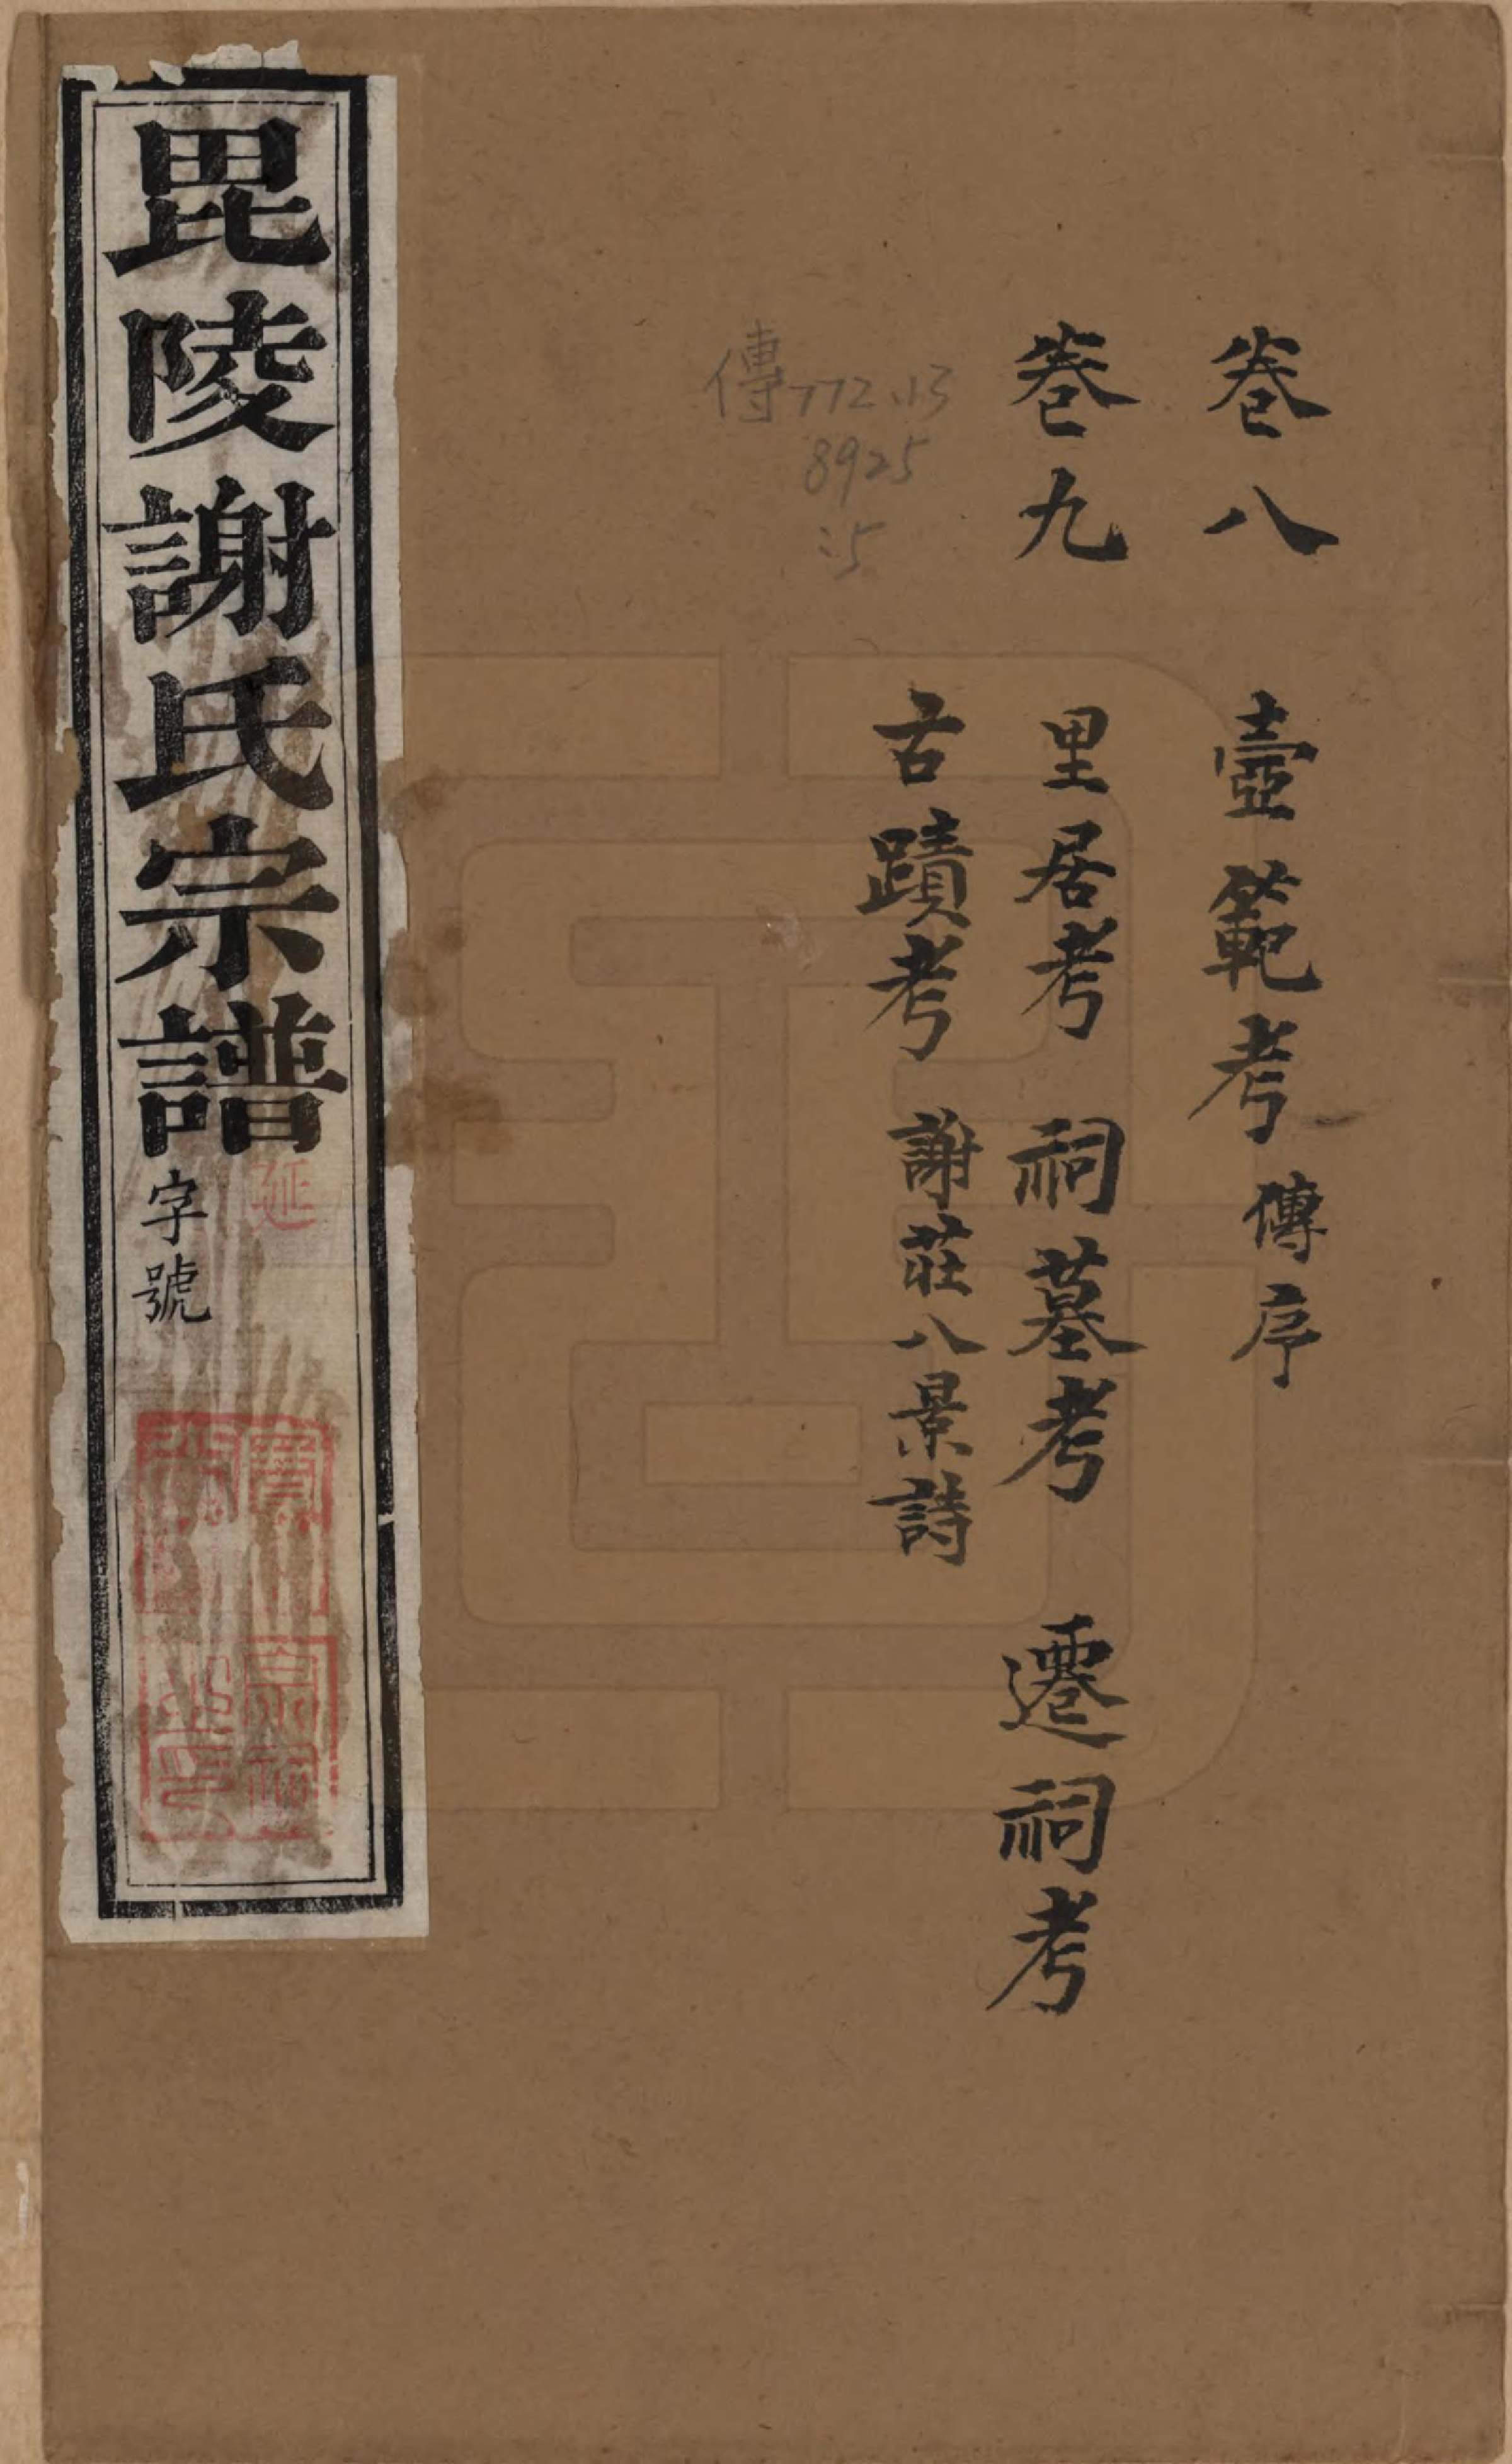 卷八　壼範考　傳序
卷九　里居考　祠墓考　遷祠考
古蹟考　謝莊八景詩
傳772.13
8925
:5
毘陵謝氏宗譜
延
字號
寶
宗祠
之印